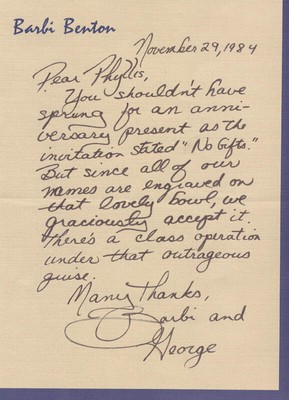 Barbi Benton
November 29, 1984
Dear Phyllis,
You shouldn't have
sprung for an anni-
versary present as the
invitation stated "No Gifts."
But since all of our
names are engraved on
that lovely bowl, we
graciously accept it.
There's a class operation
under that outrageous
guise.
Many Thanks,
Barbi and
George